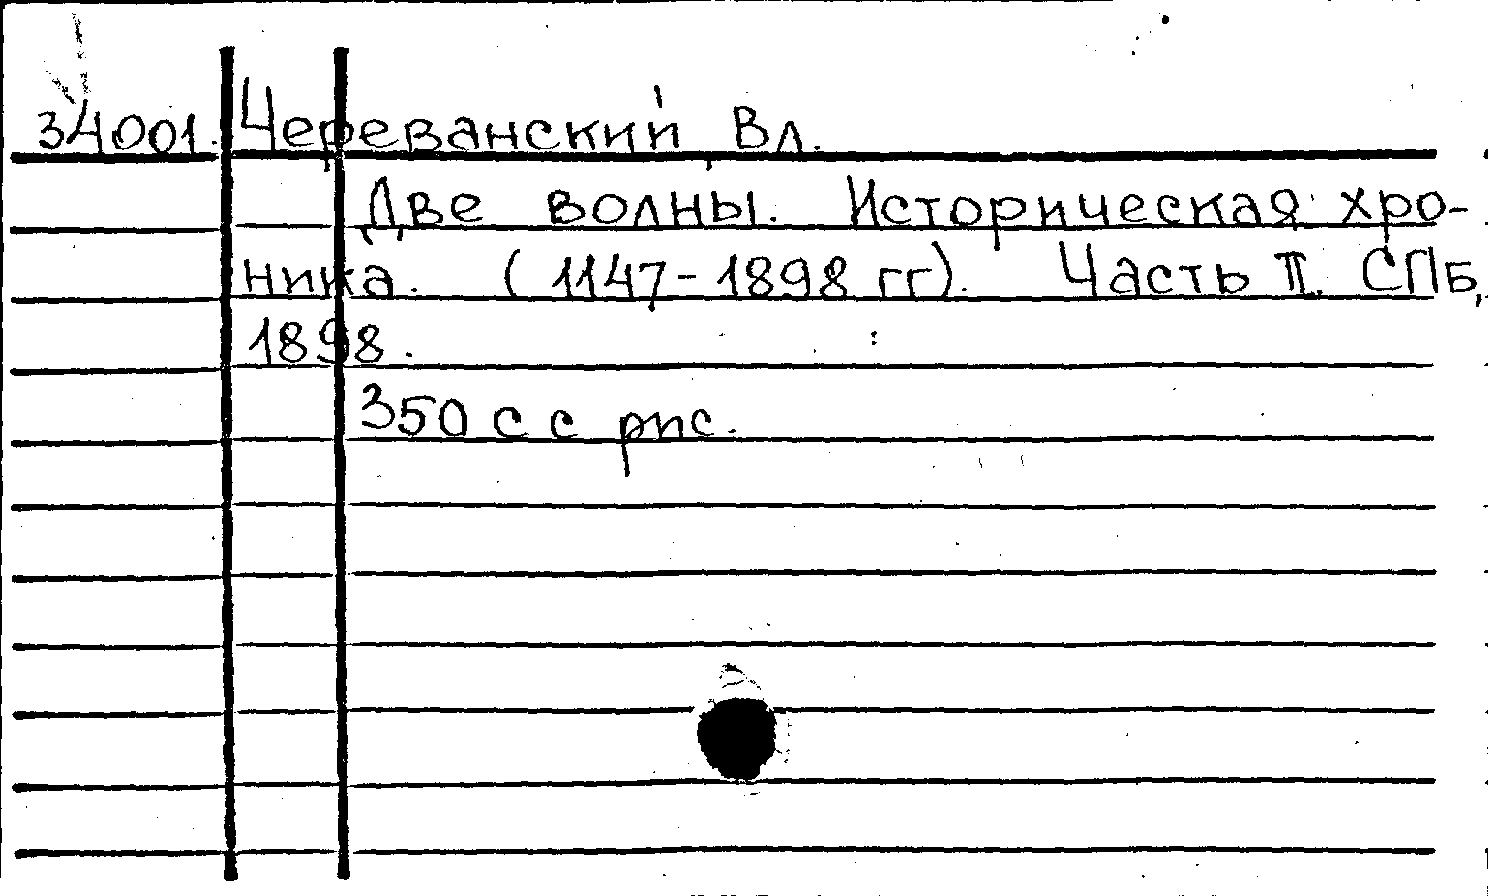 34001. Череванский, Вл.
Две волны. Историческая хро-
ника. (1147-1898 гг). Часть II. СПб,
1898.
350 с с рис.